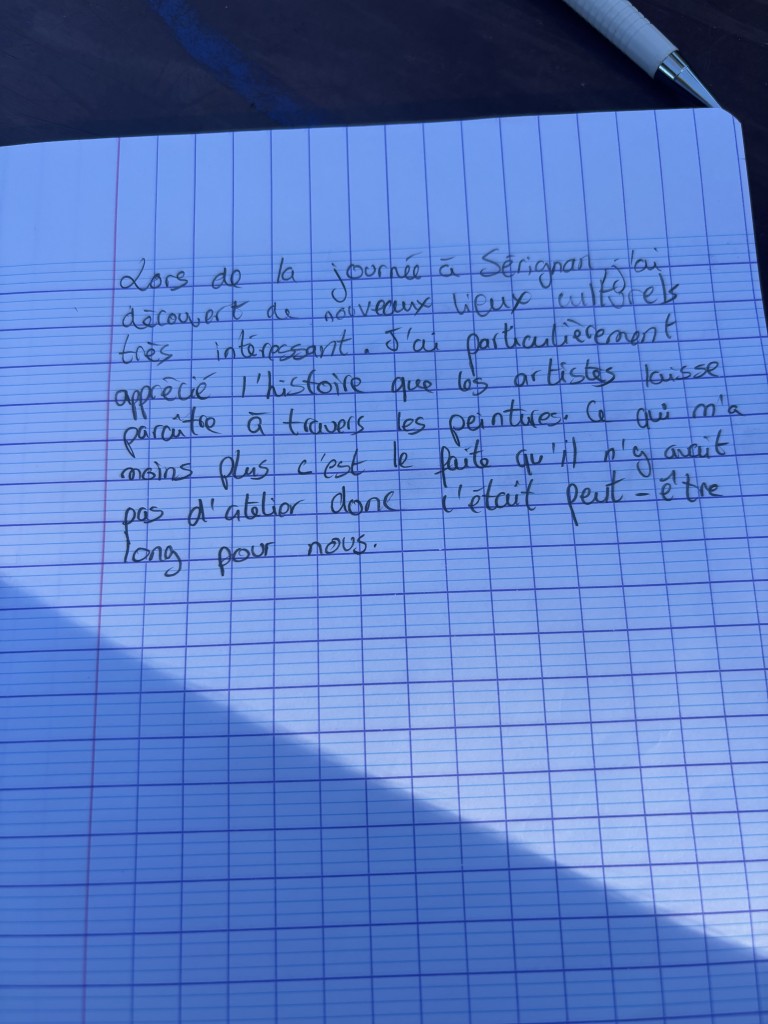 Lors de la journée à Sérignan j'ai
découvert de nouveaux lieux culturels
très intéressant. J'ai particulièrement
apprécié l'histoire que les artistes laisse
paraître à travers les peintures. Ce qui m'a
moins plus c'est le faite qu'il n'y avait
pas d'atelier donc c'était peut-être
long pour nous.